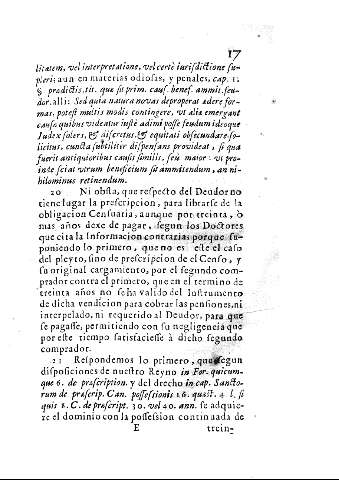 17
litatem, vel interpretatione, vel certè iurisdictione su-
pleri; aun en materias odiosas, y penales, cap. 1.
§ prædictis. tit. que fit prim. caus. benef. ammit. feu-
dor. alli: Sed quia natura novas deproperat edere for-
mas, potest multis modis contingere, ut alia emergant
causa quibus videatur iustè adimi posse feudum ideoque
Iudex solers, & discretus, & equitati obsecundare so-
licitus, cuncta subtiliter dispensans provideat, si qua
fuerit antiquioribus causis similis, seu maior: ut pro-
inde sciat utrum beneficium sit ammitendum, an ni-
hilominus retinendum.
20 Ni obsta, que respecto del Deudor no
tiene lugar la prescripcion, para librarse de la
obligacion Censuaria, aunque por treinta, ò
mas años dexe de pagar, segun los Doctores
que cita la Informacion contraria: porque su-
poniendo lo primero, que no es este el caso
del pleyto, sino de prescripcion de el Censo, y
su original cargamento, por el segundo com-
prador contra el primero, que en el termino de
treinta años no se ha valido del Instrumento
de dicha vendicion para cobrar las pensiones, ni
interpelado, ni requerido al Deudor, para que
se pagasse, permitiendo con su negligencia que
por este tiempo satisfaciesse à dicho segundo
comprador.
21 Respondemos lo primero, que segun
disposiciones de nuestro Reyno in For. quicum-
que 6. de præscription. y del derecho in cap. Sancto-
rum de præscrip. Can. possessionis 16. quæst. 4. l. si
quis 1. C. de præscript. 30. vel 40. ann. se adquie-
re el dominio con la possession continuada de
E trein-